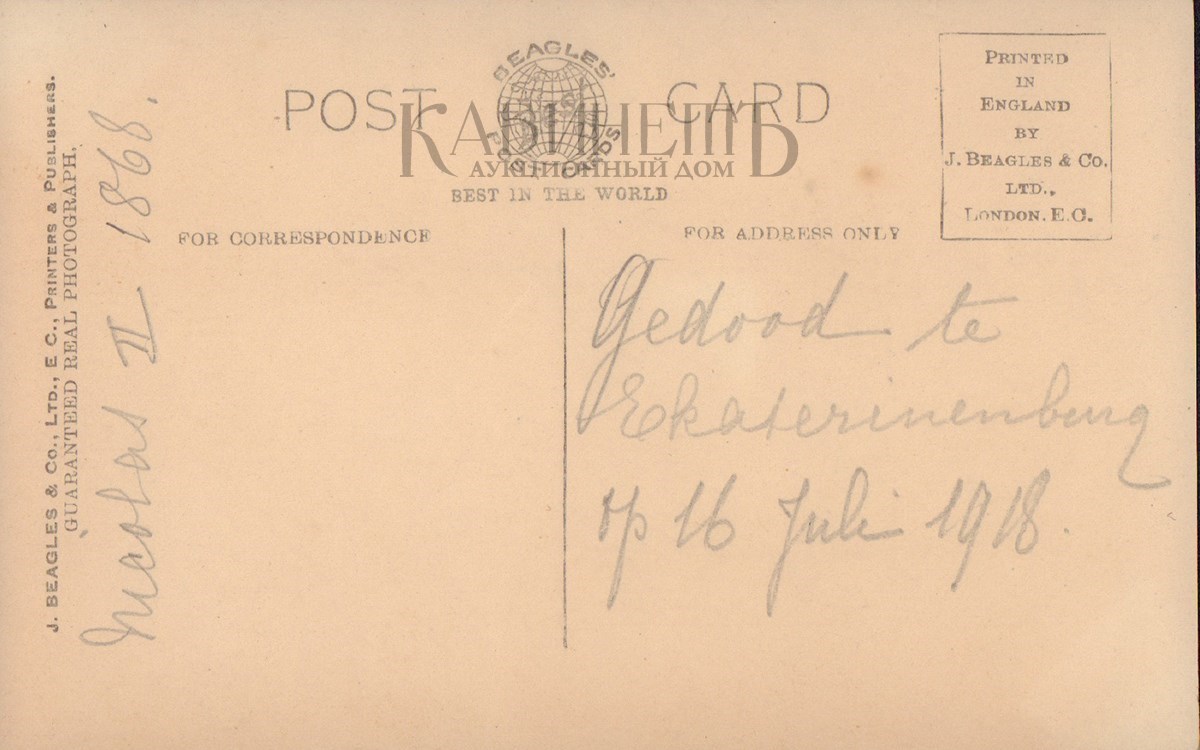 POST CARD
BEAGLES'
POST CARDS
BEST IN THE WORLD
КАБИНЕТЪ
АУКЦИОННЫЙ ДОМ
PRINTED
IN
ENGLAND
BY
J. BEAGLES & CO.
LTD.,
LONDON. E.C.
FOR CORRESPONDENCE
FOR ADDRESS ONLY
J. BEAGLES & CO., LTD., E C., PRINTERS & PUBLISHERS.
GUARANTEED REAL PHOTOGRAPH.
Nicolas II 1868.
Gedood te
Ekaterinenburg
op 16 Juli 1918.